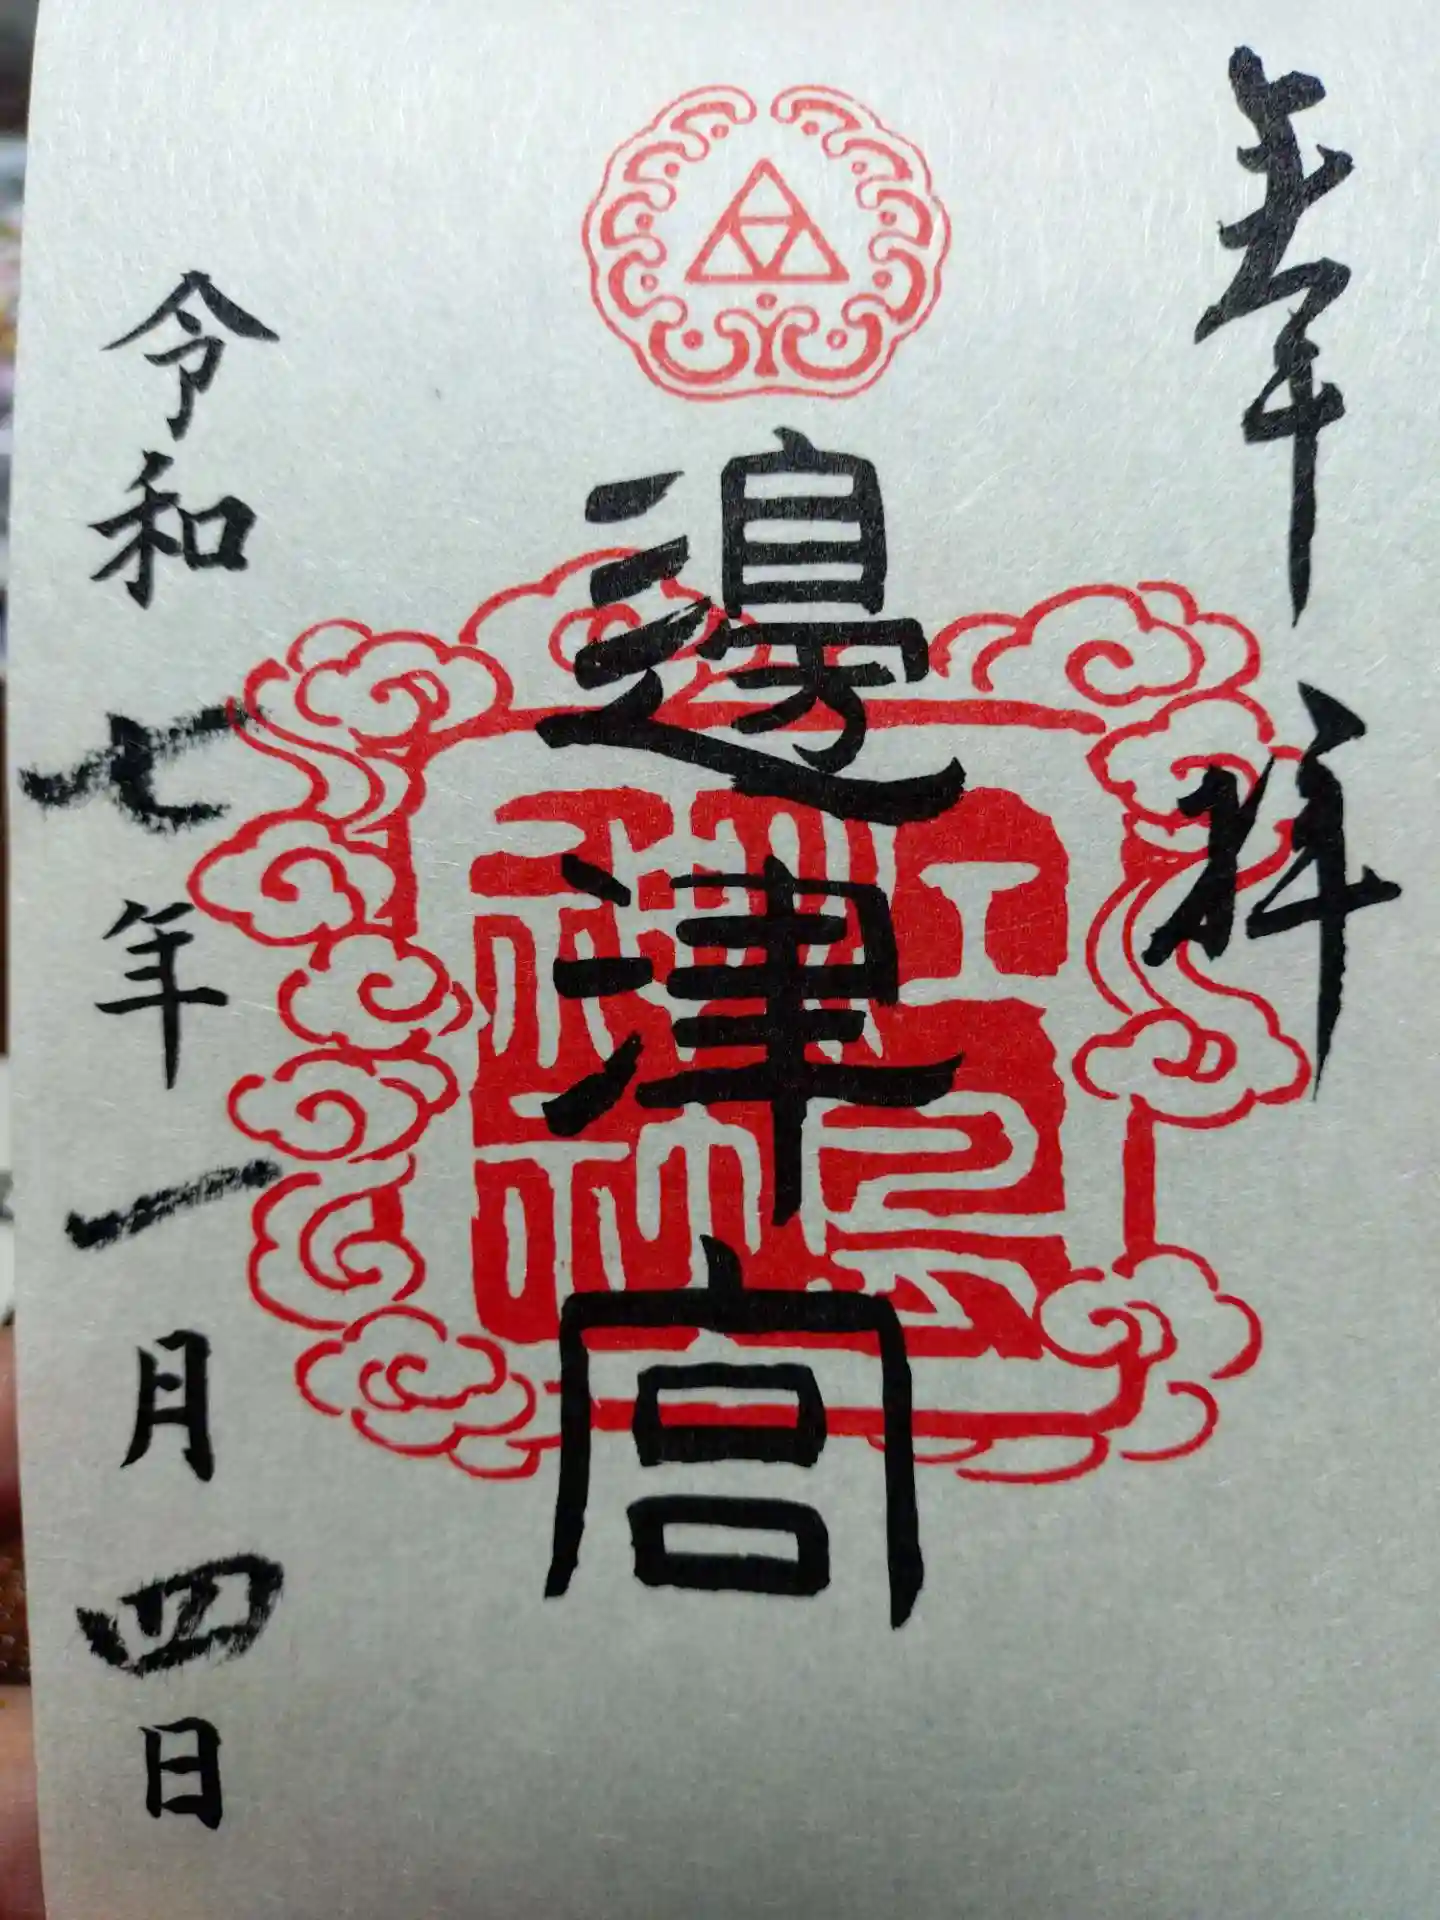 奉拝
邉津宮
令和七年一月四日